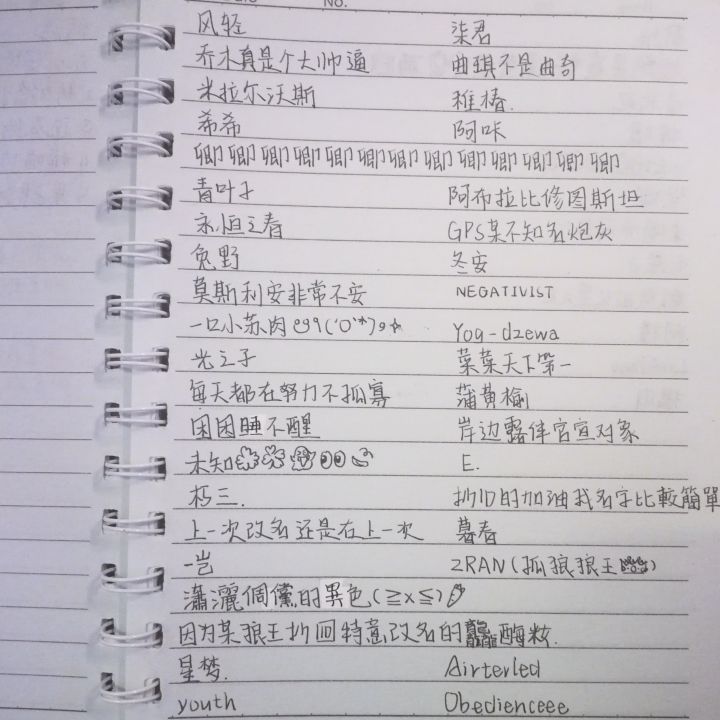 No.
风轻 柒君
乔木真是个大帅逼 曲琪不是曲奇
米拉尔沃斯 稚椿.
希希 阿咔
唧唧唧唧唧唧唧唧唧唧唧唧唧
青叶子 阿布拉比修图斯坦
永恒之春 GPS某不知名炮灰
兔野 冬安
莫斯利安非常不安 NEGATIVIST
一口小苏肉 Yog-dzewa
光之子 菜菜天下第一
每天都在努力不孤寡 蒲黄榆
困困睡不醒 岸边露伴官宣对象
未知 E.
朽三. 抄ID的加油我名字比較簡單
上一次改名还是在上一次 暮春
一岂 ZRAN(孤狼狼王)
瀟灑倜儻的異色(≧x≦)
因为某狼王抄回特意改名的龘酶籹.
星梦. Airterled
youth Obedienceee